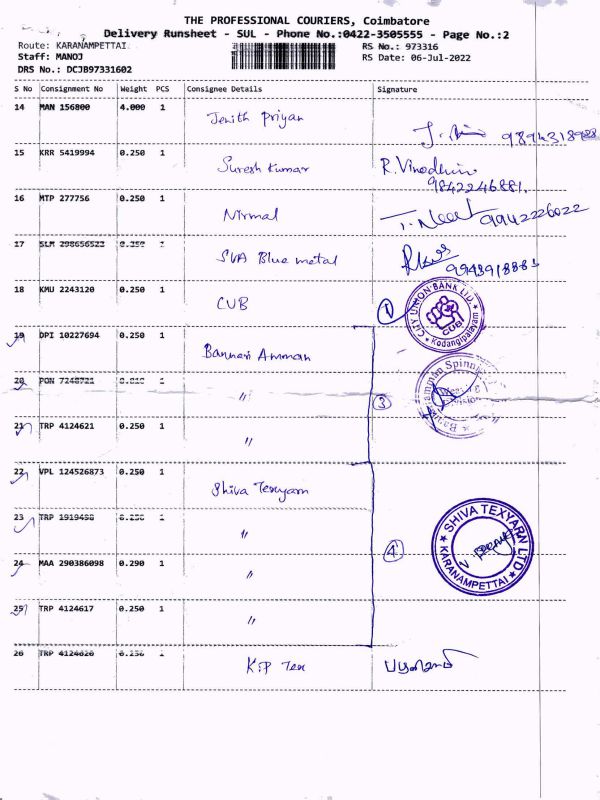 THE PROFESSIONAL COURIERS, Coimbatore
Delivery Runsheet - SUL - Phone No.:0422-3505555 - Page No.:2
Route: KARANAMPETTAI. RS No.: 973316
Staff: MANOJ RS Date: 06-Jul-2022
DRS No.: DCJB97331602
S No Consignment No Weight PCS Consignee Details Signature
14 MAN 156800 4.000 1 Jenith Priyan
15 KRR 5419994 0.250 1 Suresh Kumar R. Vinodhini
9842246881.
16 MTP 277756 0.250 1 Nirmal 9942226022
17 SLM 298656522 1 SVA Blue metal
18 KMU 2243120 0.250 1 CUB 1 CITY UNION BANK LTD. CUB Kodangipalayam
19 DPI 10227694 0.250 1 Bannari Amman
20 1 〃 3
21 TRP 4124621 0.250 1 〃
22 VPL 124526873 0.250 1 Shiva Texyarn
23 TRP 1 〃 SHIVA TEXYARN LTD KARANAMPETTAI
24 MAA 290386098 0.290 1 〃 4
25 TRP 4124617 0.250 1 〃
26 TRP 4124620 1 K.P Tex